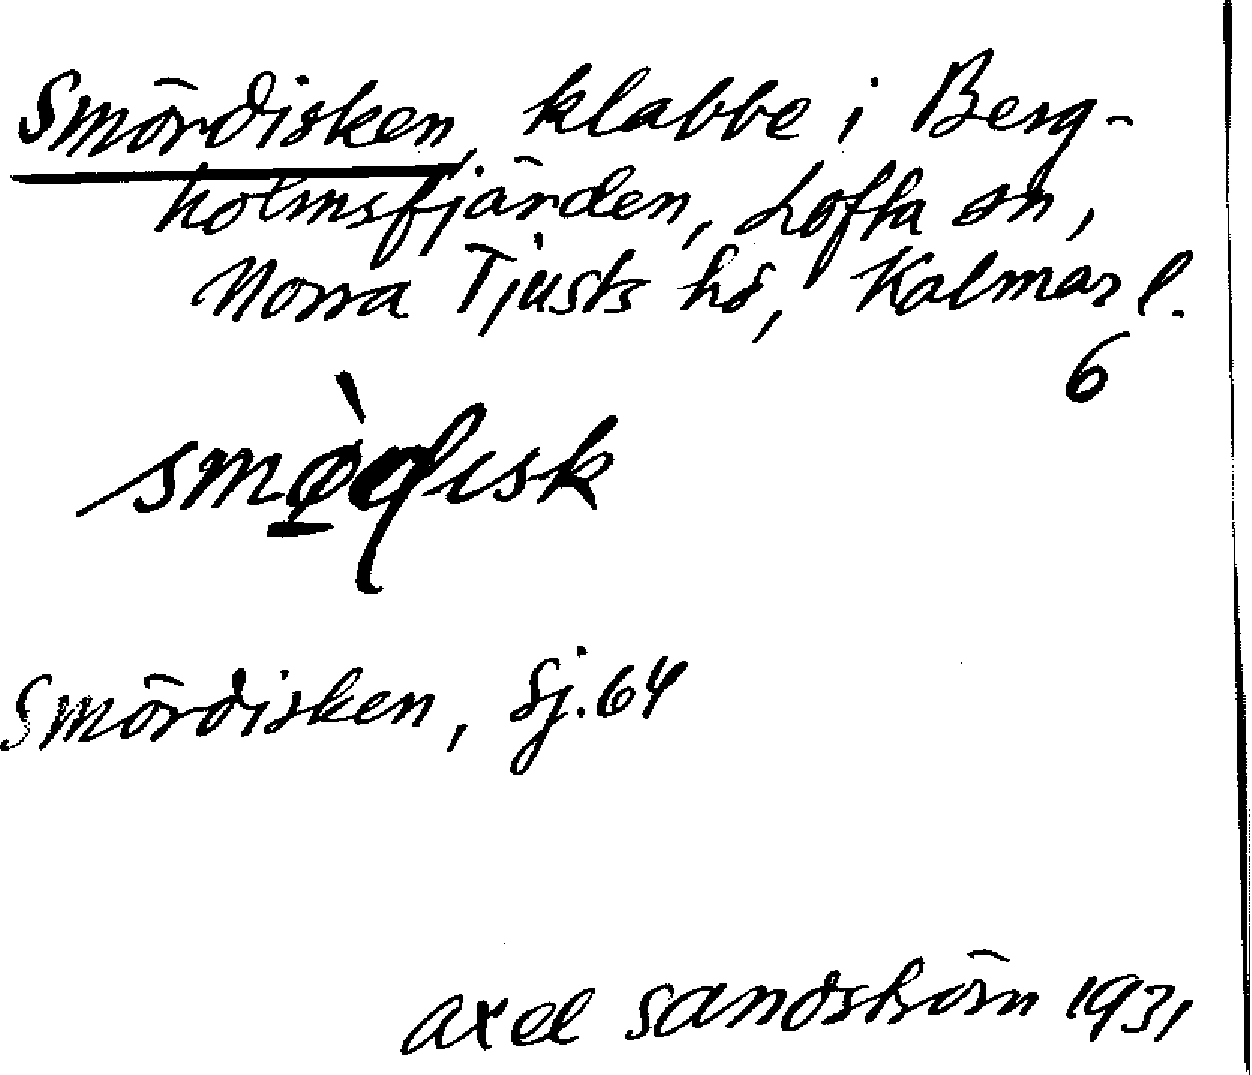 Smördisken, klabbe i Berg-
holmsfjärden, Lofta sn,
Norra Tjusts hd, Kalmar l.
6
Smördisken, Sj.64
Axel Sandström 1931